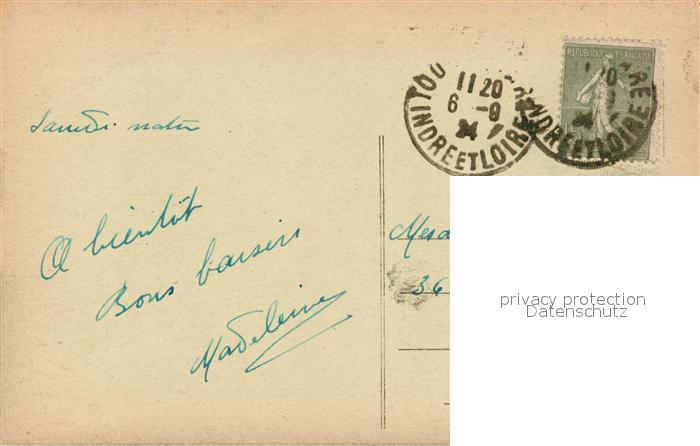 REPUBLIQUE FRANÇAISE
11 20
6 -9
24
INDRE ET LOIRE
INDRE ET LOIRE
Samedi matin
A bientôt
Bons baisers
Madeleine
36
privacy protection
Datenschutz